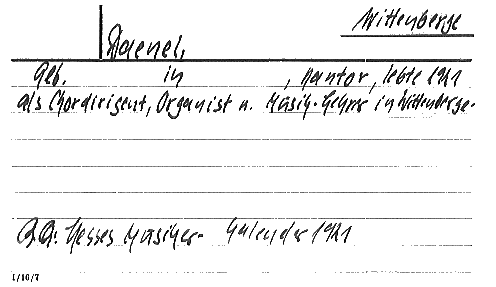 Wittenberge
Daenel,
Geb. in , Kantor, lebte 1921
als Chordirigent, Organist u. Musik-Lehrer in Wittenberge.
Hesses Musiker- Kalender 1921
1/10/7